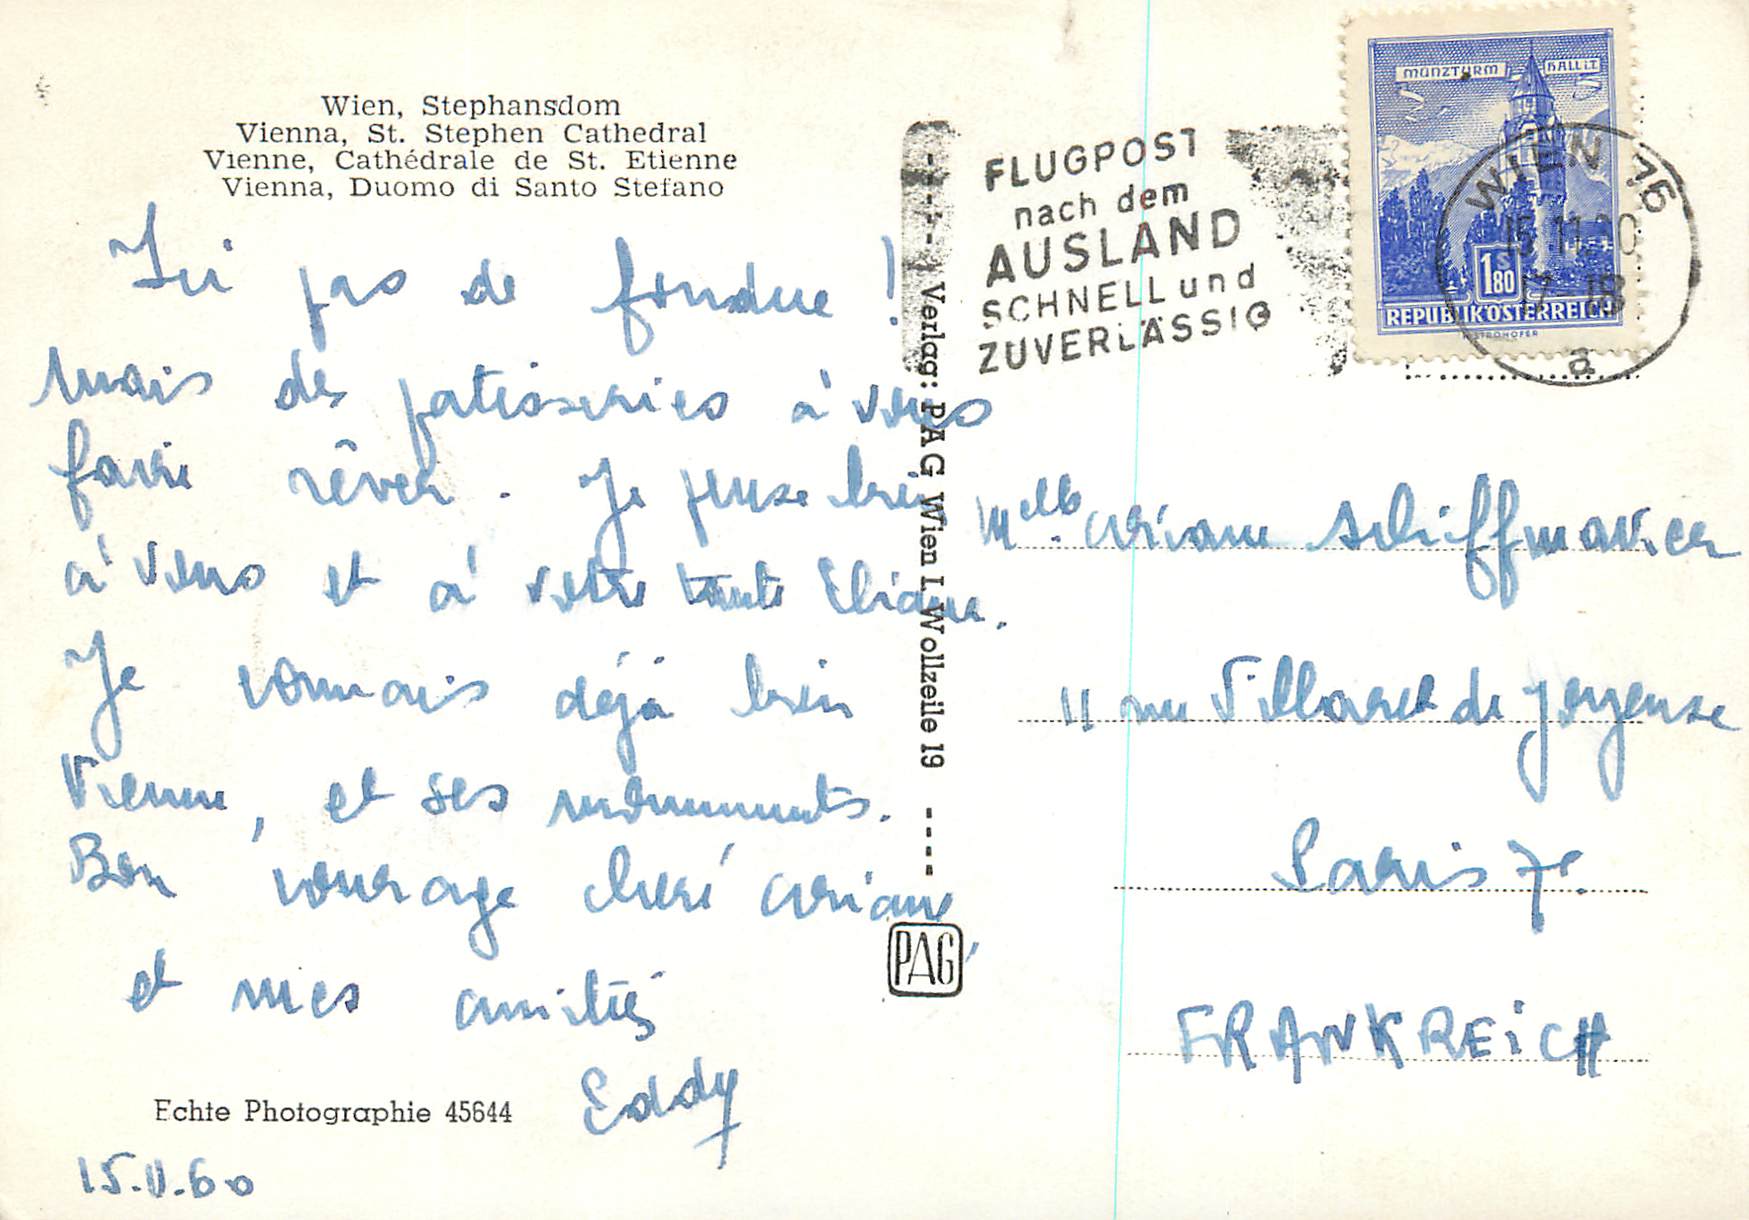 Wien, Stephansdom
Vienna, St. Stephen Cathedral
Vienne, Cathédrale de St. Etienne
Vienna, Duomo di Santo Stefano
Ici pas de fondue !
mais des patisseries à vous
faire rêver. Je pense bien
à vous et à votre tante Eliane.
Je connais déjà bien
Vienne, et ses monuments.
Bon courage chère Ariane,
et mes amitiés
Eddy
Echte Photographie 45644
15.11.60
Verlag: PAG Wien I, Wollzeile 19
PAG
FLUGPOST
nach dem
AUSLAND
SCHNELL und
ZUVERLÄSSIG
MÜNZTURM HALL i.T.
1.80 S
REPUBLIK ÖSTERREICH
WIEN 76
15.11.60
17-18
a
Melle Ariane Schiffmacher
11 rue Villaret de Joyeuse
Paris 7e.
FRANKREICH